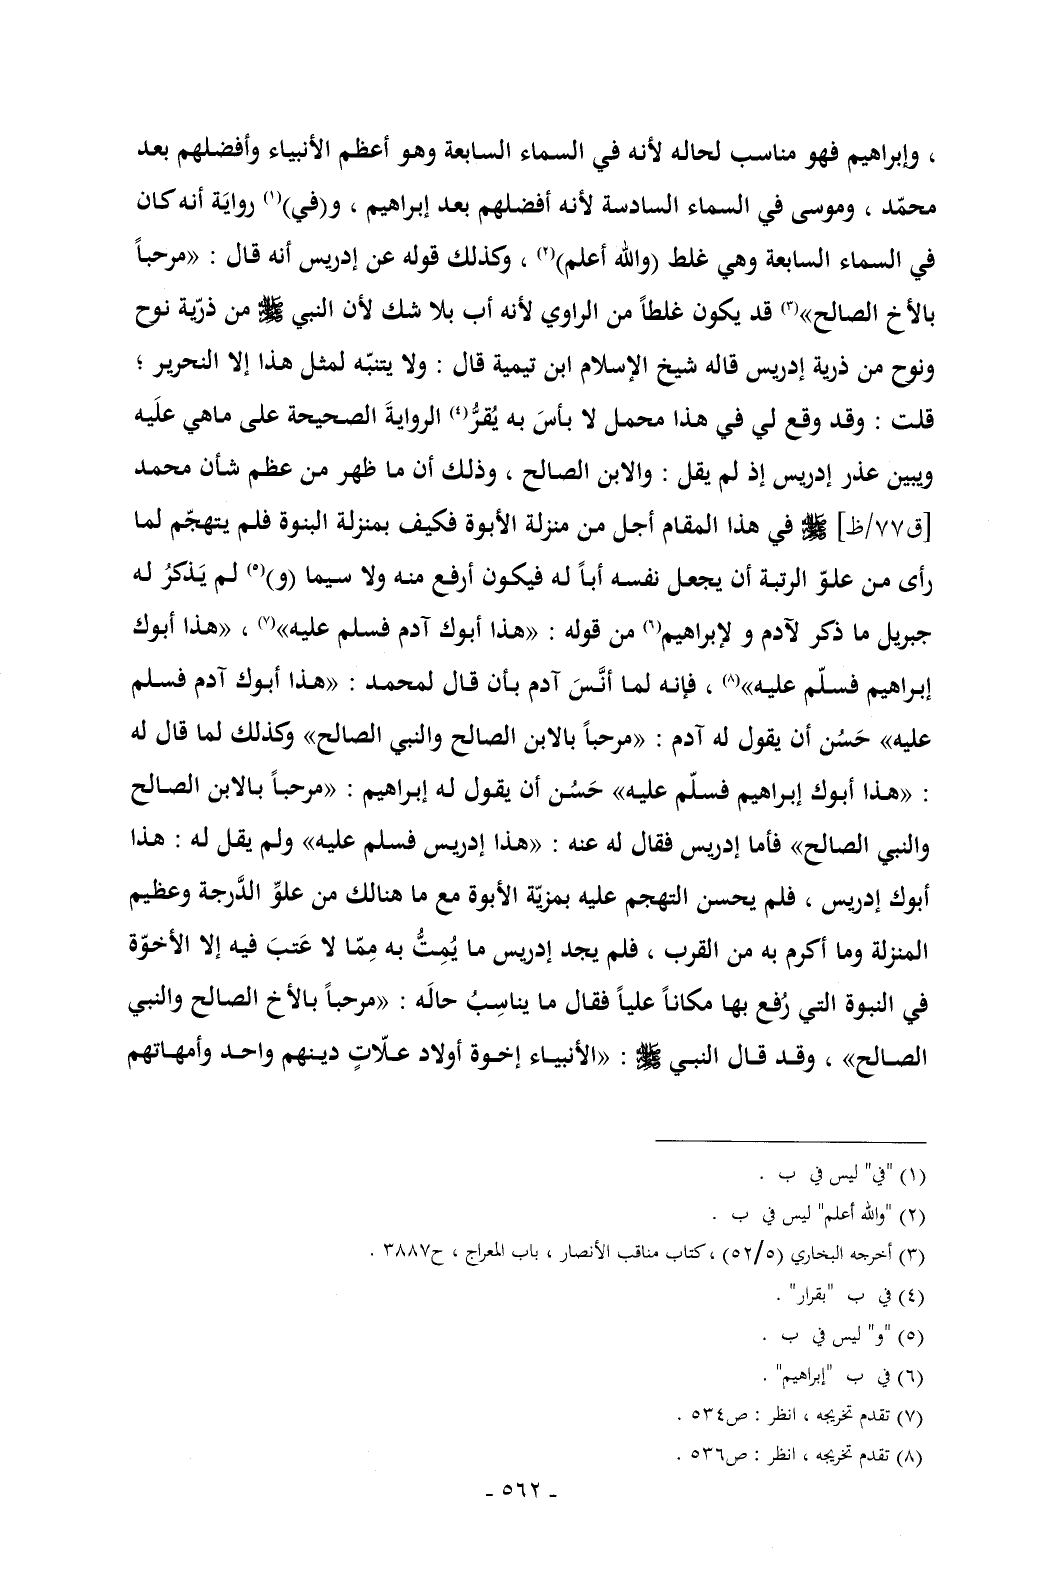 ، وإبراهيم فهو مناسب لحاله لأنه في السماء السابعة وهو أعظم الأنبياء وأفضلهم بعد
محمّد ، وموسى في السماء السادسة لأنه أفضلهم بعد إبراهيم ، و(في)(١) روايَة أنه كان
في السماء السابعة وهي غلط (والله أعلم)(٢) ، وكذلك قوله عن إدريس أنه قال : «مرحباً
بالأخ الصالح»(٣) قد يكون غلطاً من الراوي لأنه أب بلا شك لأن النبي ﷺ من ذريّة نوح
ونوح من ذرية إدريس قاله شيخ الإسلام ابن تيمية قال : ولا يتنبّه لمثل هذا إلا النحرير ؛
قلت : وقد وقع لي في هذا محمل لا بأسَ به يُقرُّ(٤) الروايةَ الصحيحة على ماهي علَيه
ويبين عذر إدريس إذ لم يقل : والابن الصالح ، وذلك أن ما ظهر من عظم شأن محمد
[ق٧٧/ظ] ﷺ في هذا المقام أجل من منزلة الأبوة فكيف بمنزلة البنوة فلم يتهجّم لما
رأى من علوّ الرتبة أن يجعل نفسه أباً له فيكون أرفع منه ولا سيما (و)(٥) لم يَذكرُ له
جبريل ما ذكر لآدم و لإبراهيم(٦) من قوله : «هذا أبوك آدم فسلم عليه»(٧) ، «هذا أبوك
إبراهيم فسلّم عليه»(٨) ، فإنه لما أنَّسَ آدم بأن قال لمحمد : «هذا أبوك آدم فسلم
عليه» حَسُن أن يقول له آدم : «مرحباً بالابن الصالح والنبي الصالح» وكذلك لما قال له
: «هذا أبوك إبراهيم فسلّم عليه» حَسُن أن يقول له إبراهيم : «مرحباً بالابن الصالح
والنبي الصالح» فأما إدريس فقال له عنه : «هذا إدريس فسلم عليه» ولم يقل له : هذا
أبوك إدريس ، فلم يحسن التهجم عليه بمزيّة الأبوة مع ما هنالك من علوِّ الدَّرجة وعظيم
المنزلة وما أكرم به من القرب ، فلم يجد إدريس ما يُمِتُّ به مِمّا لا عَتبَ فيه إلا الأخوّة
في النبوة التي رُفع بها مكاناً علياً فقال ما يناسِبُ حالَه : «مرحباً بالأخ الصالح والنبي
الصالح» ، وقد قال النبي ﷺ : «الأنبياء إخوة أولاد علّاتٍ دينهم واحد وأمهاتهم
(١) "في" ليس في ب .
(٢) "والله أعلم" ليس في ب .
(٣) أخرجه البخاري (٥٢/٥) ، كتاب مناقب الأنصار ، باب المعراج ، ح٣٨٨٧ .
(٤) في ب "بقرار" .
(٥) "و" ليس في ب .
(٦) في ب "إبراهيم" .
(٧) تقدم تخريجه ، انظر : ص٥٣٤ .
(٨) تقدم تخريجه ، انظر : ص٥٣٦ .
- ٥٦٢ -